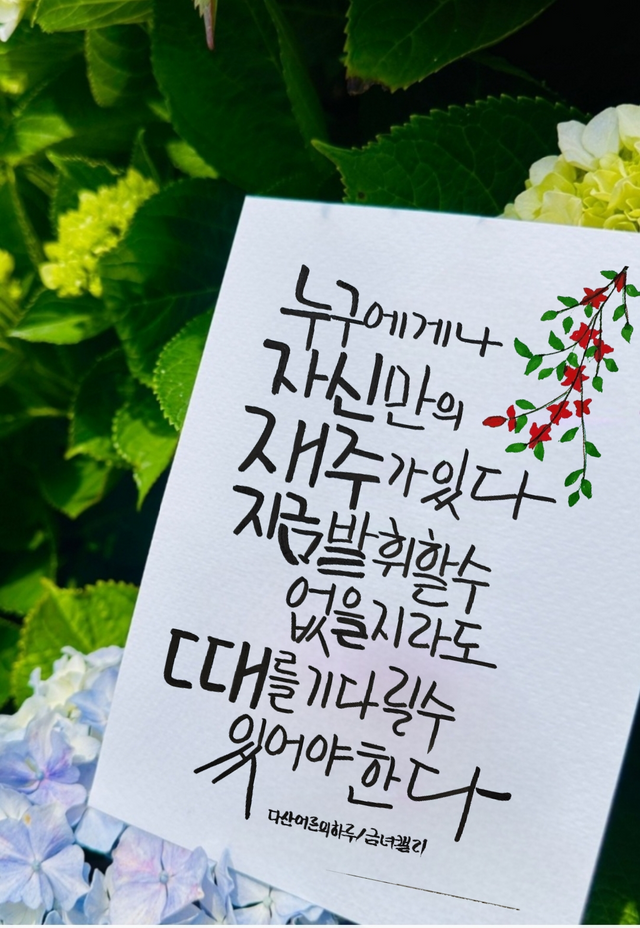 누구에게나
자신만의
재주가있다
지금발휘할수
없을지라도
때를기다릴수
있어야한다
다산어른의하루/금녀캘리